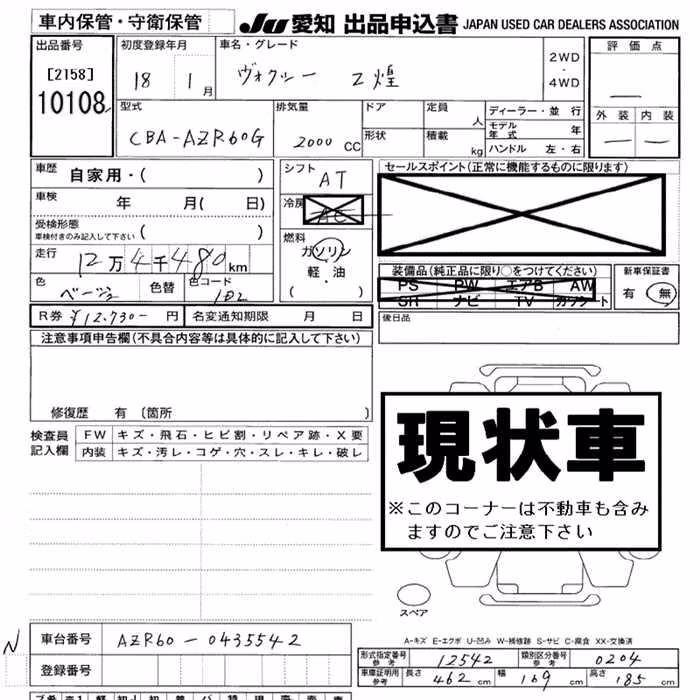 車内保管・守衛保管 JU 愛知 出品申込書 JAPAN USED CAR DEALERS ASSOCIATION
出品番号 初度登録年月 車名・グレード 2WD・4WD 評価点
[2158] 18 1月 ヴォクシー Z煌 —
10108
型式 排気量 ドア 定員 人 ディーラー・並行 外装 内装
CBA-AZR60G 2000 CC 形状 積載 kg モデル年式 年 — —
ハンドル 左・右
車歴 自家用・( ) シフト AT セールスポイント(正常に機能するものに限ります)
車検 年 月( 日) 冷房 AC
受検形態 車検付きのみ記入して下さい ( ) 燃料 ガソリン
走行 12万4千480km 軽・油 装備品(純正品に限り○をつけてください) 新車保証書
色 ベージュ 色替 色コード 1D2 ( ) PS PW エアB AW 有 無
SH ナビ TV カワシート
R券 ¥12,730- 円 名変通知期限 月 日 後日品
注意事項申告欄(不具合内容等は具体的に記入して下さい)
修復歴 有 [箇所 ]
検査員記入欄 FW キズ・飛石・ヒビ割・リペア跡・X要
内装 キズ・汚レ・コゲ・穴・スレ・キレ・破レ
現状車
※このコーナーは不動車も含み
ますのでご注意下さい
スペア
A-キズ E-エクボ U-凹み W-補修跡 S-サビ C-腐食 XX-交換済
N 車台番号 AZR60-0435542 形式指定番号 参考 12542 類別区分番号 参考 0204
登録番号 車庫証明用 参考 長さ 462 cm 幅 169 cm 高さ 185 cm